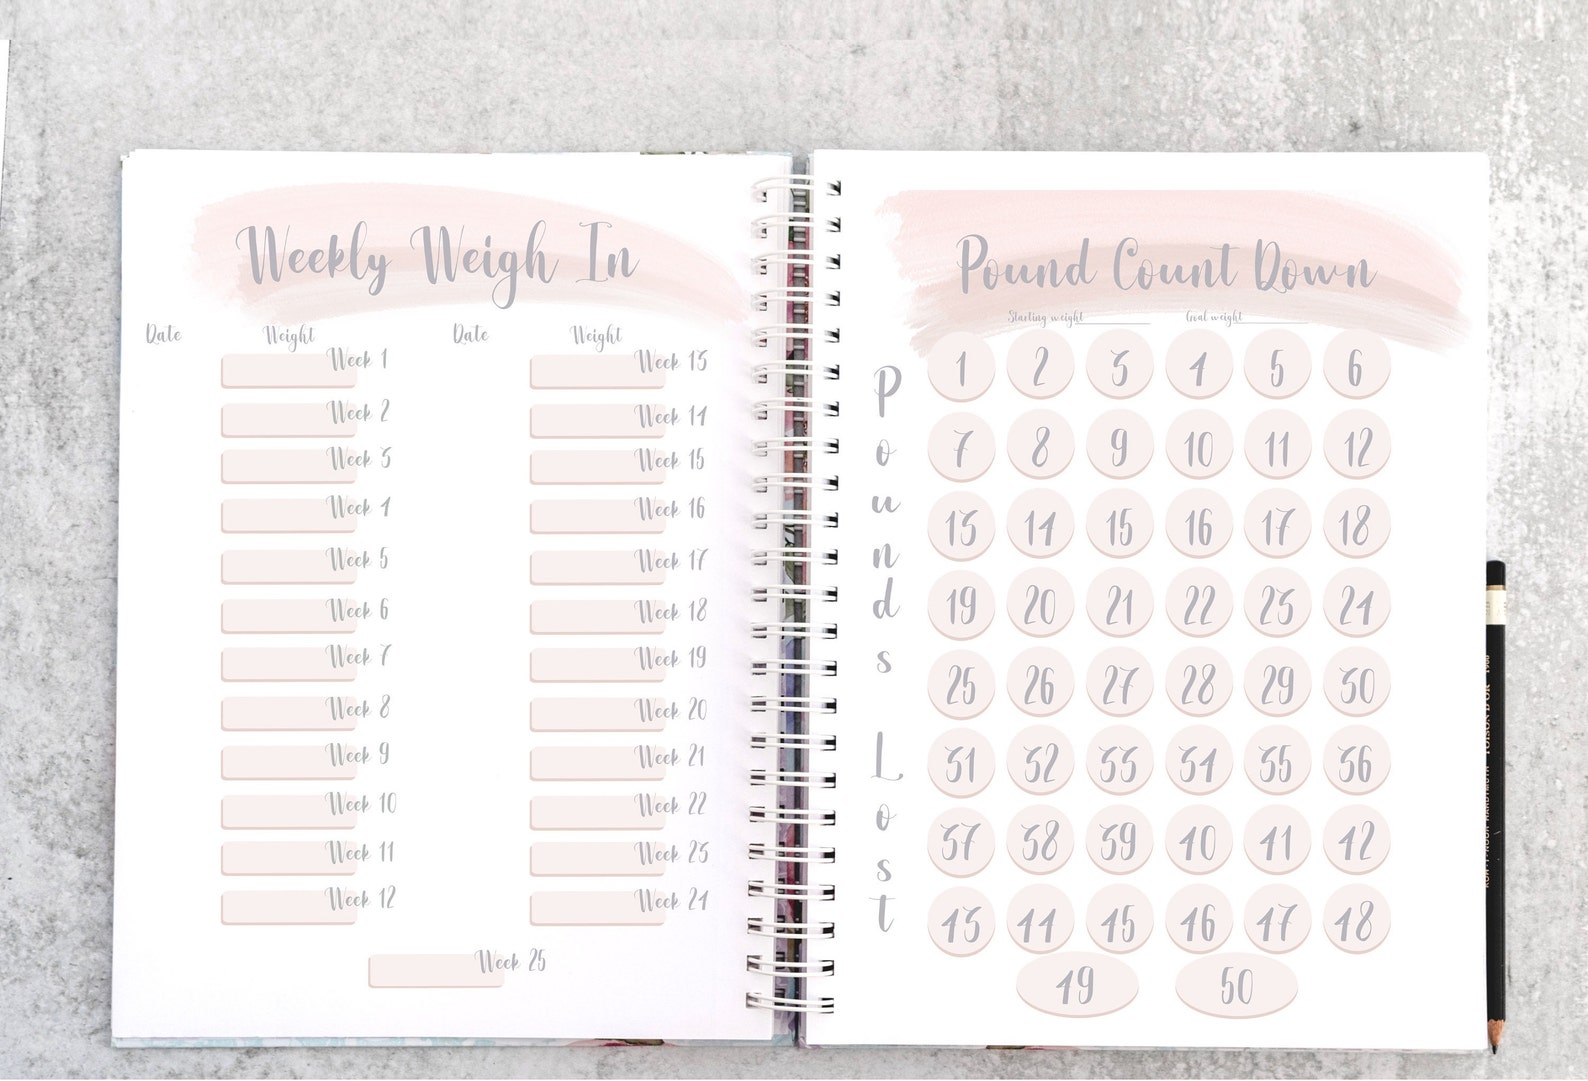 Weekly Weigh In
Date Weight Date Weight
Week 1 Week 13
Week 2 Week 14
Week 3 Week 15
Week 4 Week 16
Week 5 Week 17
Week 6 Week 18
Week 7 Week 19
Week 8 Week 20
Week 9 Week 21
Week 10 Week 22
Week 11 Week 23
Week 12 Week 24
Week 25
Pound Count Down
Starting weight Goal weight
Pounds Lost
1 2 3 4 5 6
7 8 9 10 11 12
13 14 15 16 17 18
19 20 21 22 23 24
25 26 27 28 29 30
31 32 33 34 35 36
37 38 39 40 41 42
43 44 45 46 47 48
49 50
KOH-I-NOOR HARDTMUTH TOISON D'OR 1900